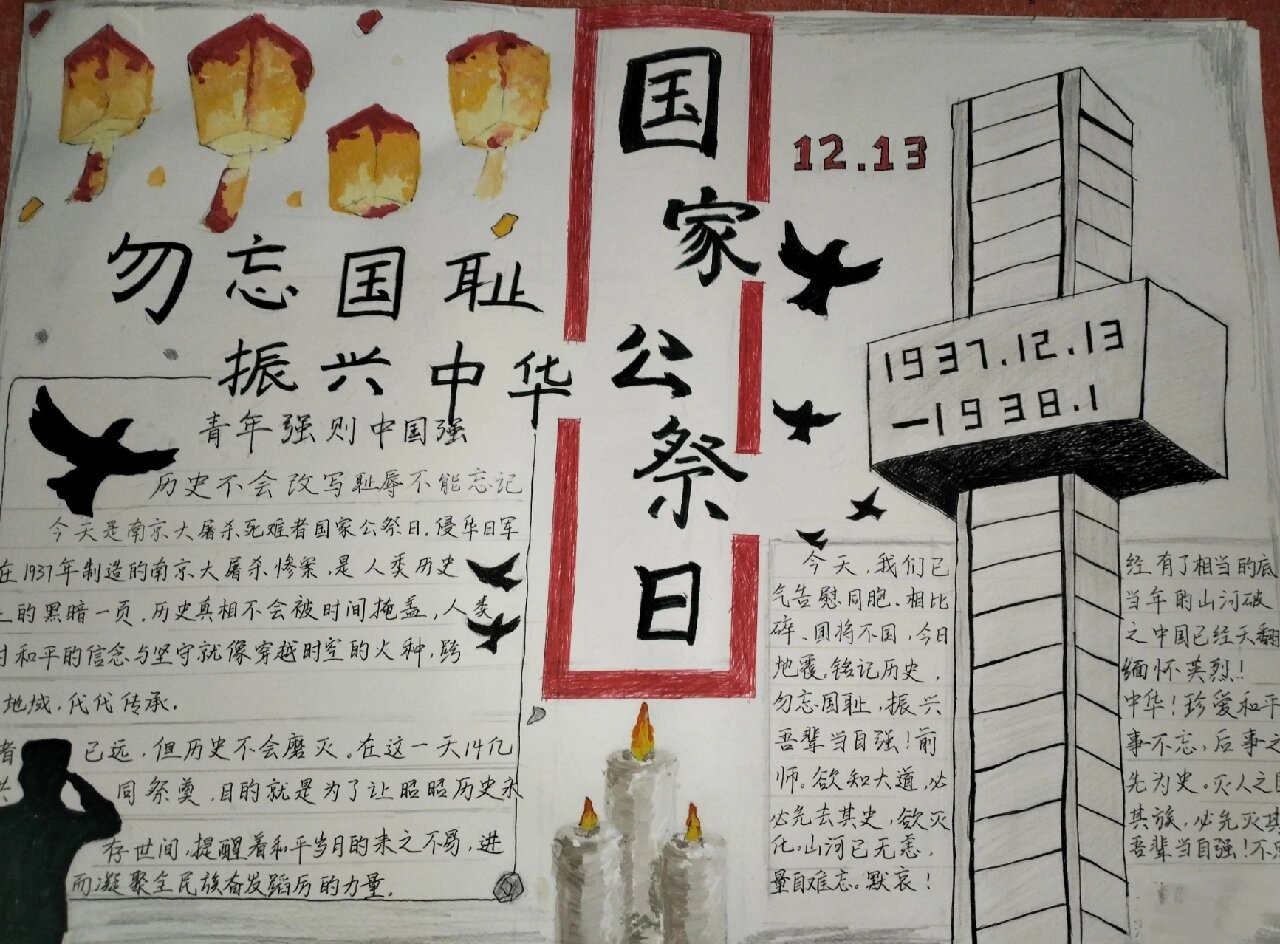 国家公祭日
12.13
勿忘国耻
振兴中华
青年强则中国强
历史不会改写耻辱不能忘记
今天是南京大屠杀死难者国家公祭日,侵华日军
在1937年制造的南京大屠杀惨案,是人类历史
上的黑暗一页,历史真相不会被时间掩盖,人类
对和平的信念与坚守就像穿越时空的火种,跨
地域,代代传承.
者已远,但历史不会磨灭。在这一天14亿
共同祭奠,目的就是为了让昭昭历史永
存世间,提醒着和平岁月的来之不易,进
而凝聚全民族奋发蹈厉的力量.
1937.12.13
-1938.1
今天,我们已经有了相当的底
气告慰同胞.相比当年的山河破
碎、国将不国,今日之中国已经天翻
地覆,铭记历史,缅怀英烈!
勿忘国耻,振兴中华!珍爱和平
吾辈当自强!前事不忘,后事之
师。欲知大道,必先为史。灭人之
必先去其史,欲灭其族,必先灭其
化,山河已无恙,吾辈当自强!不
量自难忘。默哀!